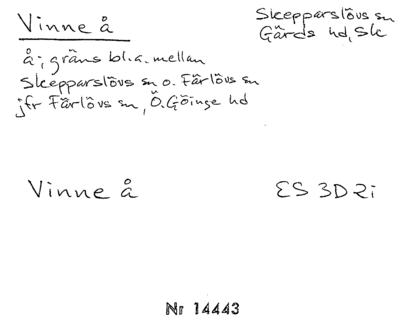 Vinne å
Skepparslövs sn
Gärds hd, Sk
å; gräns bl.a. mellan
Skepparslövs sn o. Färlövs sn
jfr Färlövs sn, Ö. Göinge hd
Vinne å
ES 3D2i
Nr 14443